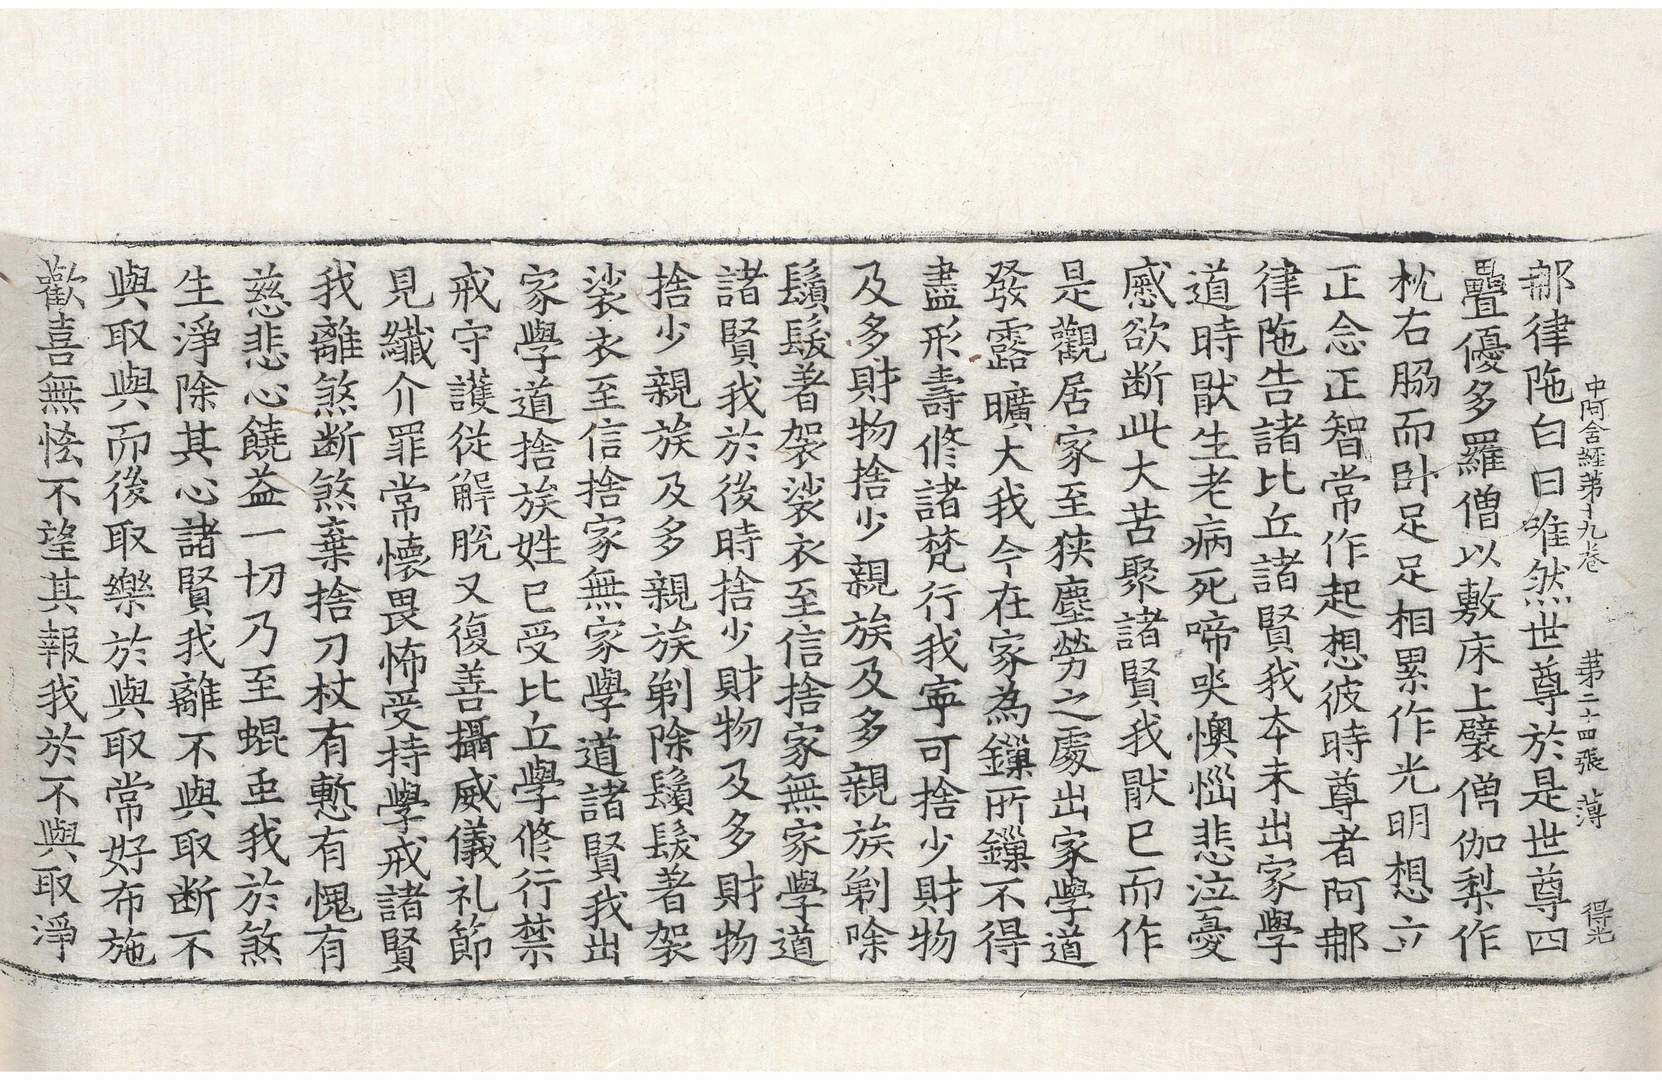 中阿含經第十九卷 第二十四張 薄 得光
那律陁白曰唯然世尊於是世尊四
疊優多羅僧以敷床上襞僧伽梨作
枕右脇而卧足足相累作光明想立
正念正智常作起想彼時尊者阿那
律陁告諸比丘諸賢我本未出家學
道時猒生老病死啼哭懊惱悲泣憂
慼欲断此大苦聚諸賢我猒已而作
是觀居家至狹塵勞之處出家學道
發露曠大我今在家為鏁所鏁不得
盡形壽修諸梵行我寧可捨少財物
及多財物捨少親族及多親族剃除
鬚髮著袈裟衣至信捨家無家學道
諸賢我於後時捨少財物及多財物
捨少親族及多親族剃除鬚髮著袈
裟衣至信捨家無家學道諸賢我出
家學道捨族姓已受比丘學修行禁
戒守護從解脫又復善攝威儀礼節
見纖介罪常懷畏怖受持學戒諸賢
我離煞断煞棄捨刀杖有慙有愧有
慈悲心饒益一切乃至蜫䖝我於煞
生淨除其心諸賢我離不與取断不
與取與而後取樂於與取常好布施
歡喜無悋不望其報我於不與取淨